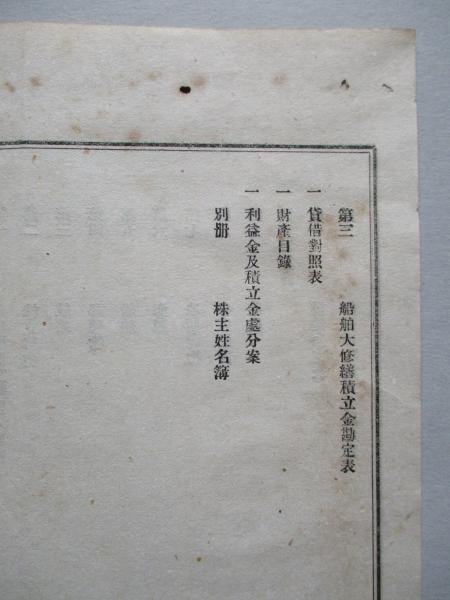 第三　船舶大修繕積立金勘定表
一 貸借對照表
一 財產目錄
一 利益金及積立金處分案
別册　株主姓名簿